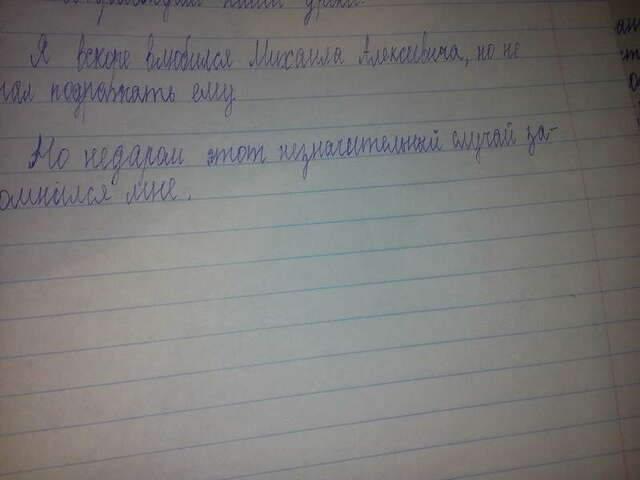 наши уроки.
Я вскоре влюбился Михаила Алексевича, но не
подражать ему.
Но недаром этот незначительный случай за-
омнился мне.